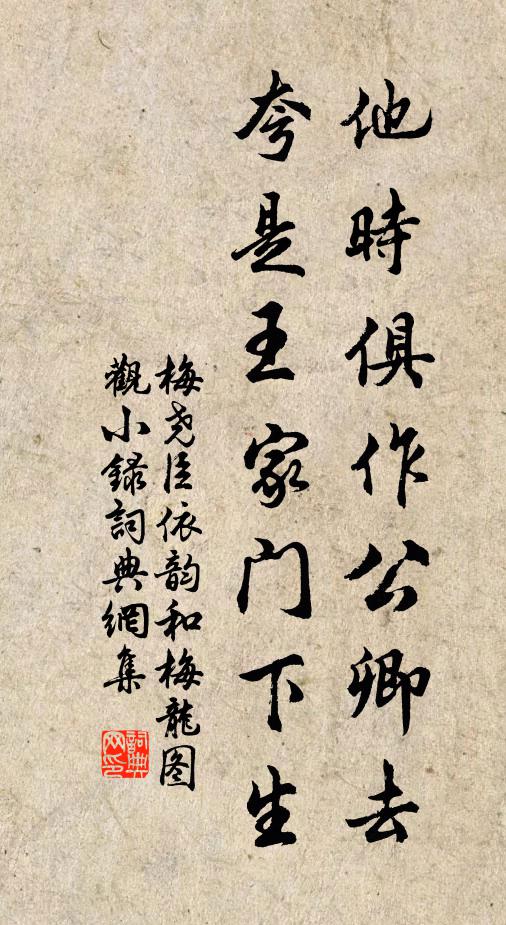 他時俱作公卿去
夸是王家门下生
梅尧臣依韵和梅龍图
觀小錄詞典網集
詞典网印